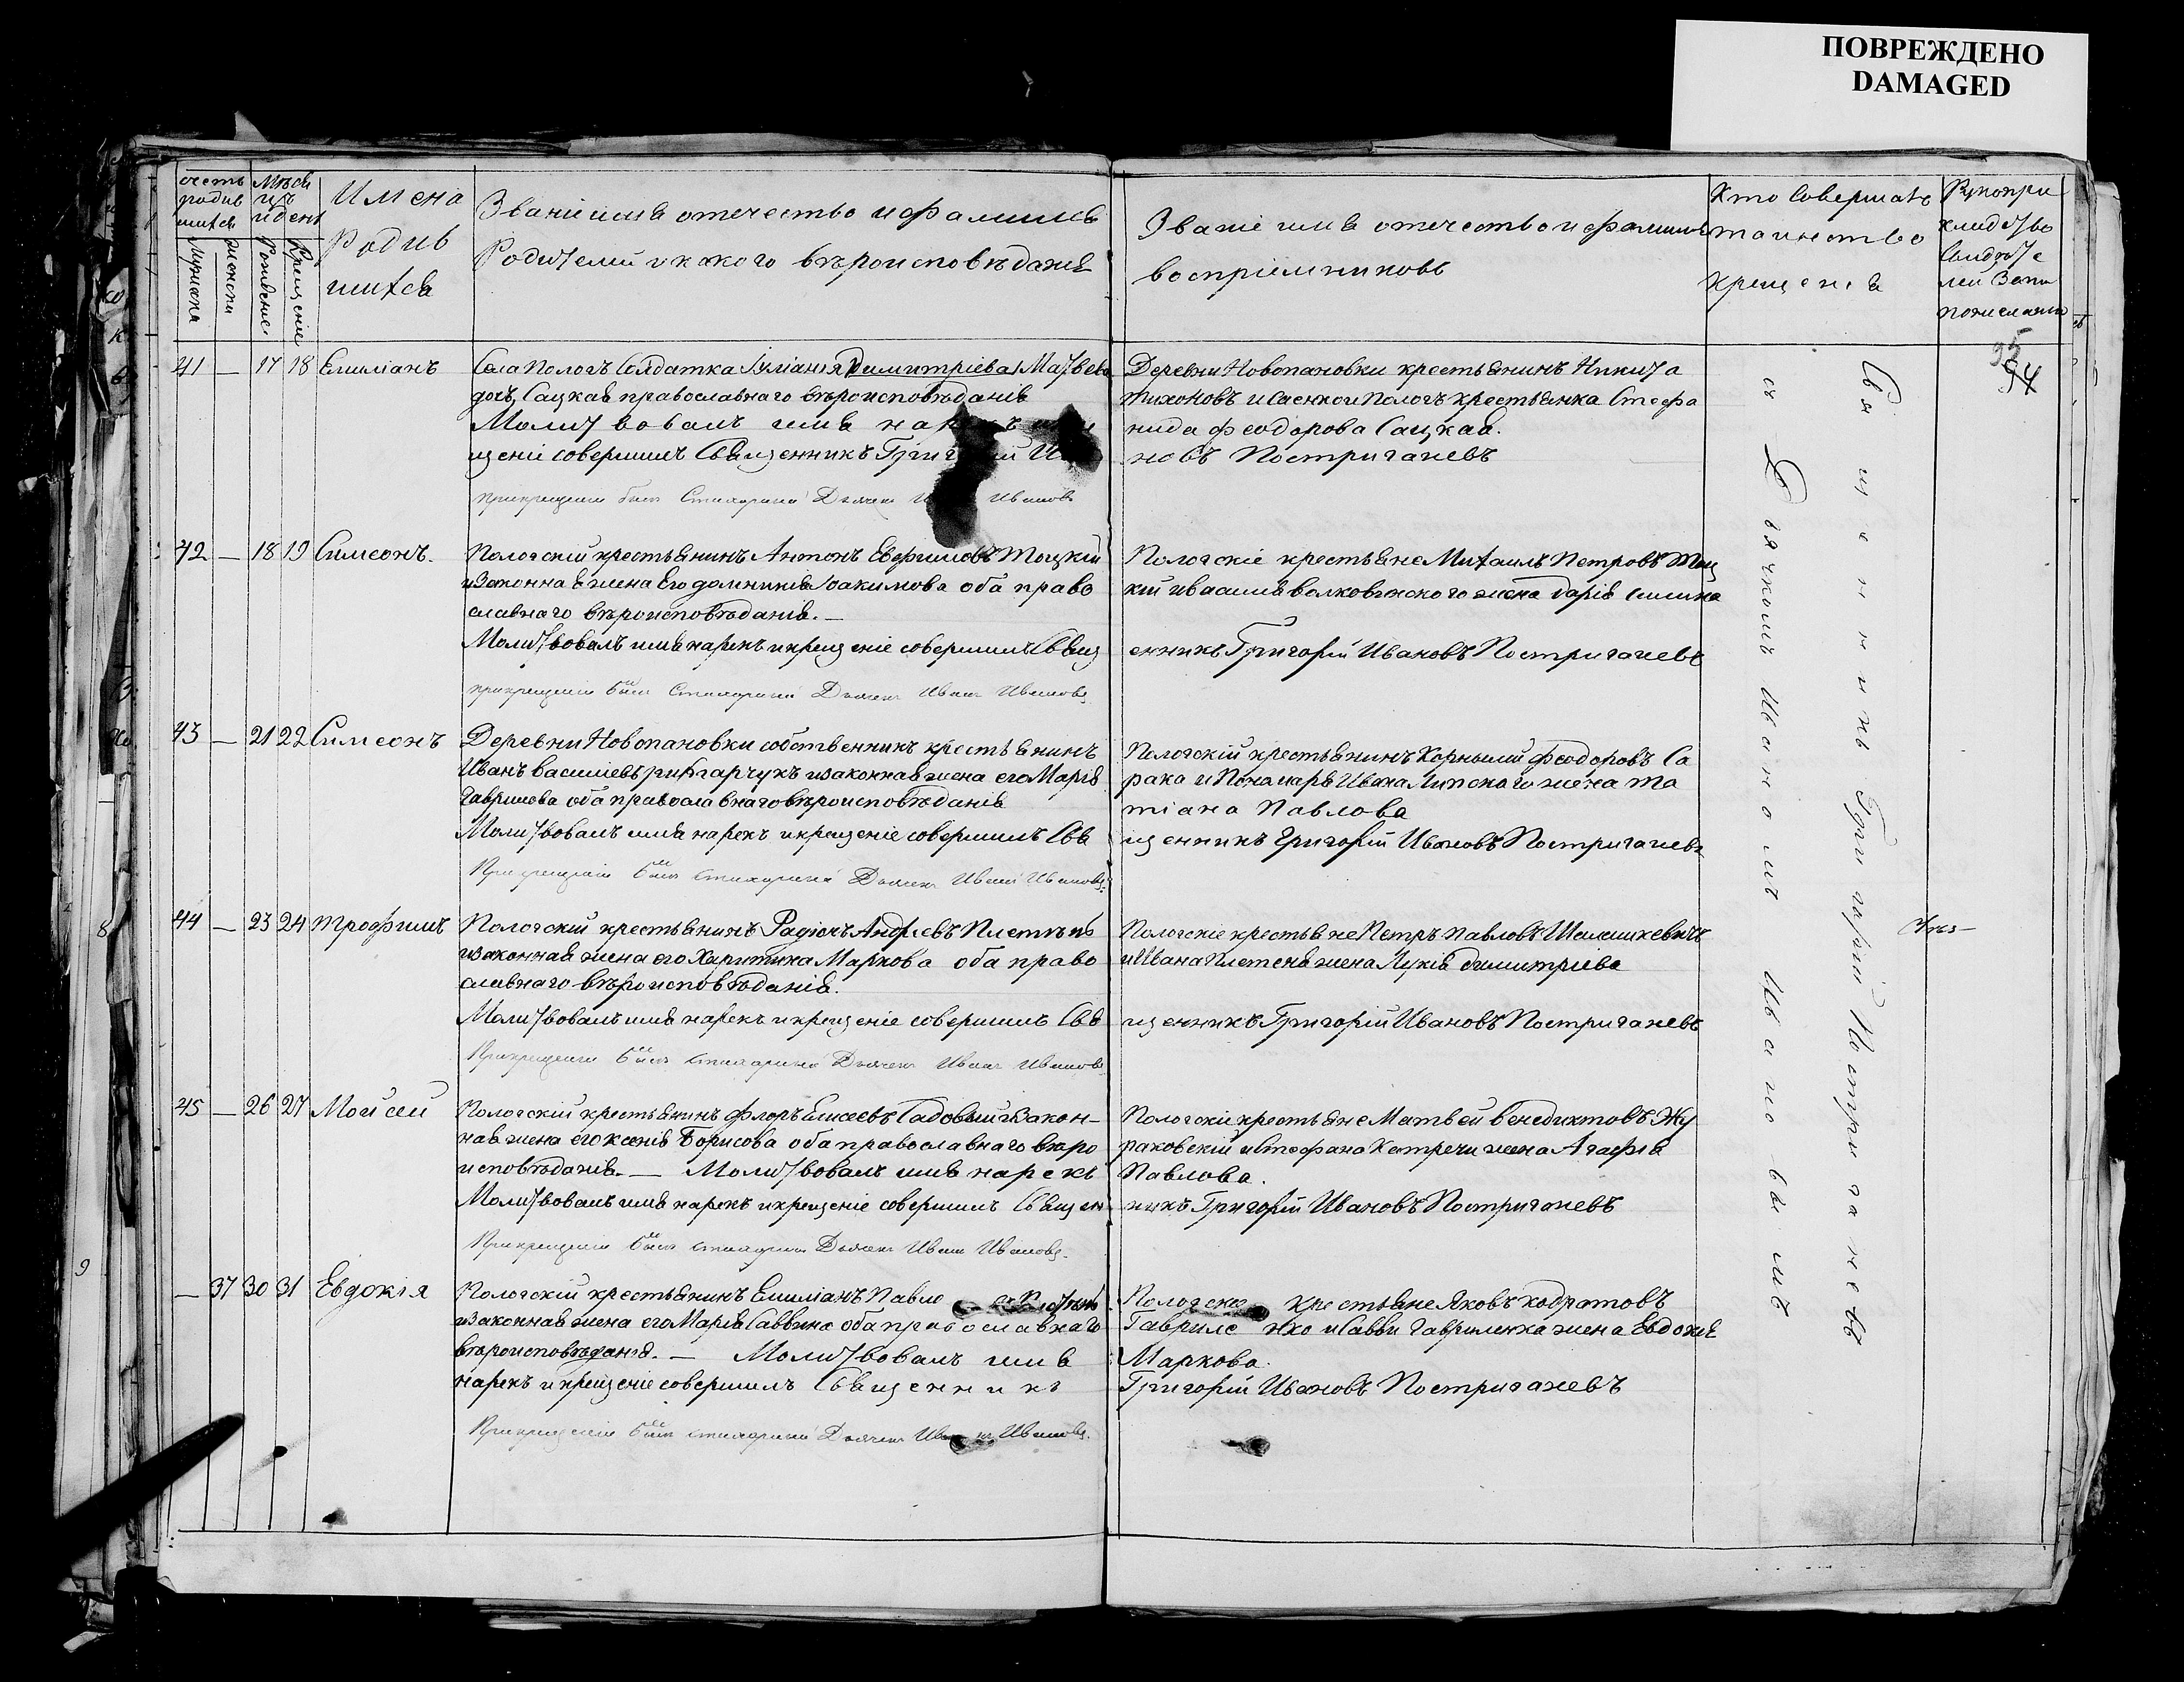 ПОВРЕЖДЕНО
DAMAGED
Счетъ родив шихся
Мужска
женска
Мѣся цъ и день
Рождение
Крещеніе
Имена
Родив
шихся
Званіе имя отечество и фамилія
Родителей и какого вѣроисповѣданія
Званіе имя отечество и фамилія
воспріемниковъ
Кто Совершалъ
таинство
крещенія
Рукопри
кладство
Свидѣте
лей Запи
95
94
41 — 17 18 Емиліанъ
Села Пологъ Солдатка Іуліанія Димитріева Матвева
дочь Сацкая православнаго вѣроисповѣданія
Молитвовалъ имя
щеніе совершилъ Священникъ Григорій
при крещеніи былъ Стихарный Дьячекъ Ивановъ
Деревни Новопановки крестьянинъ Никита
Тихоновъ и Пологъ крестьянка Стефа
нида Феодорова Сацкая.
новъ Постригачевъ
42 — 18 19 Симеонъ.
Пологскій крестьянинъ Антонъ Евфимовъ Тоцкій
и Законная жена Его домникія Іоакимова оба право
славнаго вѣроисповѣданія. —
Молитвовалъ имя нарекъ и крещеніе совершилъ Свящ
при крещеніи былъ Стихарный Дьячекъ Иванъ Ивановъ
Пологскіе крестьяне Михаилъ Петровъ Тоц
кій и василія волковинского жена дарія
енникъ Григорій Ивановъ Постригачевъ
43 — 21 22 Симеонъ
Деревни Новопановки собственникъ крестьянинъ
Иванъ василіевъ и законная жена его Марія
Гавриилова оба православнаго вѣроисповѣданія
Молитвовалъ имя нарекъ и крещеніе совершилъ Свя
При крещеніи былъ стихарный Дьячекъ Иванъ Ивановъ
Пологскій крестьянинъ Корнилий феодоровъ Са
рака и Пономаря Ивана Липского жена Та
тіана Павлова
щенникъ Григорій Ивановъ Постригачевъ
44 — 23 24 Трофимъ
Пологскій крестьянинъ Радіонъ Андреевъ Плетень
и законная жена его Харитина Маркова оба право
славнаго вѣроисповѣданія.
Молитвовалъ имя нарекъ и крещеніе совершилъ Свя
При крещеніи былъ стихарный Дьячекъ Иванъ Ивановъ
Пологскіе крестьяне Петръ Павловъ
и Ивана Плетеня жена Лукія димитріева
щенникъ Григорій Ивановъ Постригачевъ
45 — 26 27 Мойсей
Пологскій крестьянинъ флоръ Елисеевъ Садовый и Закон-
ная жена его ксенія Борисова оба православнаго вѣро
исповѣданія. — Молитвовалъ имя нарекъ
Молитвовалъ имя нарекъ и крещеніе совершилъ Священ
При крещеніи былъ стихарный Дьячекъ Иванъ Ивановъ.
Пологскіе крестьяне Матвей венедиктовъ Жу
раковскій и Стефана жена Агафія
Павлова.
никъ Григорій Ивановъ Постригачевъ
— 37 30 31 Евдокія
Пологскій крестьянинъ Емиліанъ Павло
и законная жена его Марія Саввина оба православнаго
вѣроисповѣданія. — Молитвовалъ имя
нарекъ и крещеніе совершилъ Священникъ
При крещеніи былъ стихарный Дьячекъ Иванъ Ивановъ.
Пологскіе крестьяне Яковъ кодратовъ
Гавриле нко и Савви Гавриленка жена Евдокія
Маркова.
Григорій Ивановъ Постригачевъ
Священникъ Григорій Постригачевъ
съ Дьячкомъ Иваномъ Ивановымъ